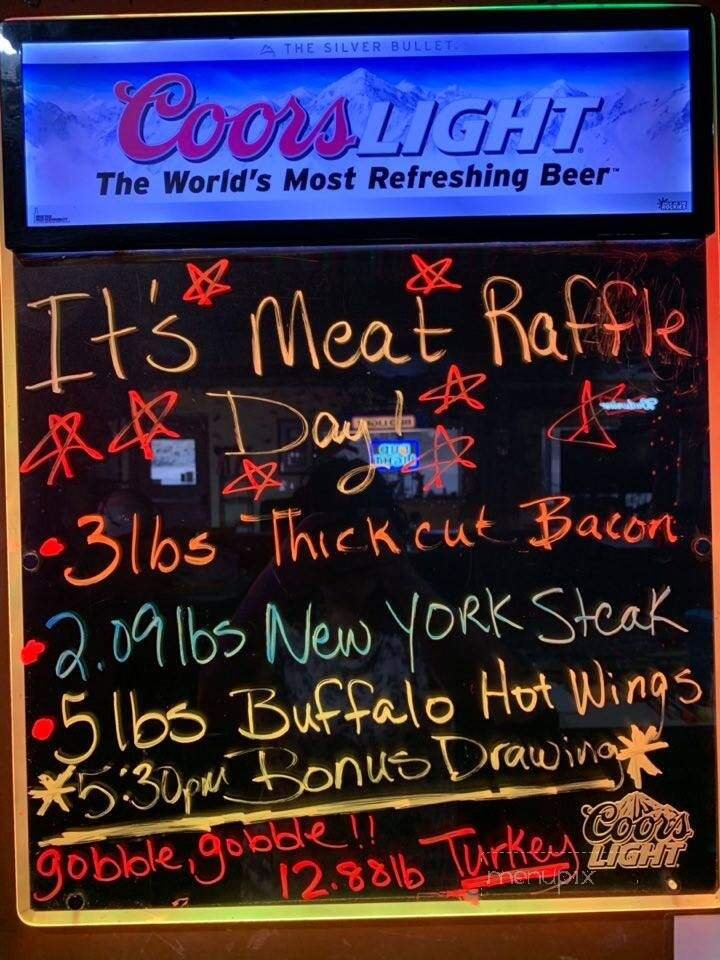 THE SILVER BULLET.
Coors LIGHT
The World's Most Refreshing Beer™
It's Meat Raffle
Day!
• 3lbs Thick cut Bacon
• 2.09 lbs New YORK Steak
• 5 lbs Buffalo Hot Wings
*5:30pm Bonus Drawing*
gobble, gobble!!
12.88lb Turkey
Coors
LIGHT
menupix